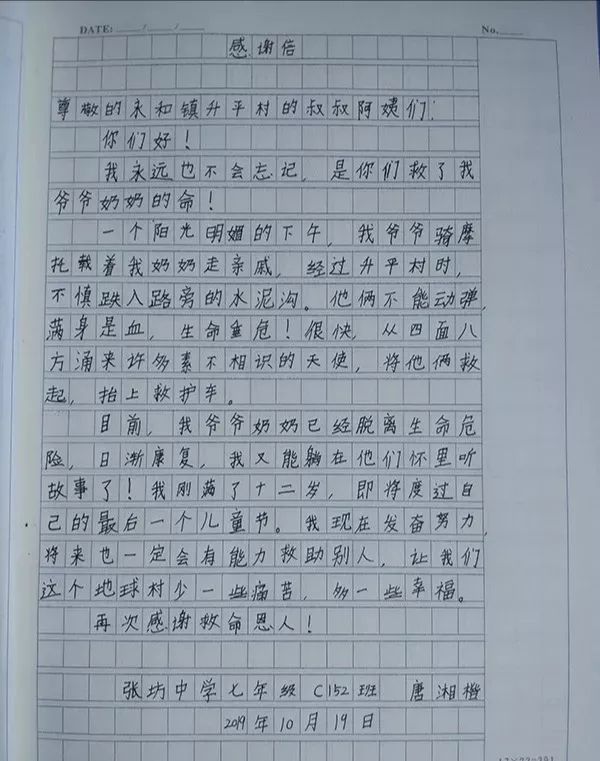 DATE: / /
No.
感谢信
尊敬的永和镇升平村的叔叔阿姨们:
你们好!
我永远也不会忘记,是你们救了我
爷爷奶奶的命!
一个阳光明媚的下午,我爷爷骑摩
托载着我奶奶走亲戚,经过升平村时,
不慎跌入路旁的水泥沟。他俩不能动弹,
满身是血,生命垂危!很快,从四面八
方涌来许多素不相识的天使,将他俩救
起,抬上救护车。
目前,我爷爷奶奶已经脱离生命危
险,日渐康复,我又能躺在他们怀里听
故事了!我刚满了十二岁,即将度过自
己的最后一个儿童节。我现在发奋努力,
将来也一定会有能力救助别人,让我们
这个地球村少一些痛苦,多一些幸福。
再次感谢救命恩人!
张坊中学七年级 C152班 唐湘橙
2019年10月19日